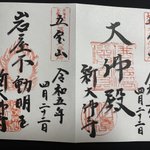 大佛殿
令和五年
四月二十二日
新大佛寺
五宝山
岩屋不動明王
令和五年
四月二十二日
新大佛寺